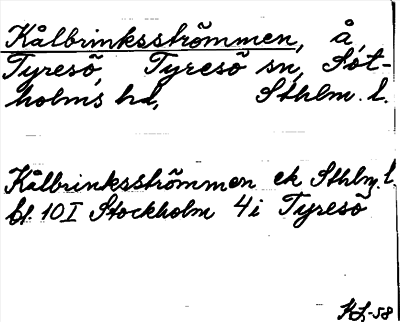 Kålbrinksströmmen, å,
Tyresö, Tyresö sn, Sot-
holms hd, Sthlm. l.
Kålbrinksströmmen ek Sthlm. l.
bl. 10 I Stockholm 4i Tyresö
KL-58